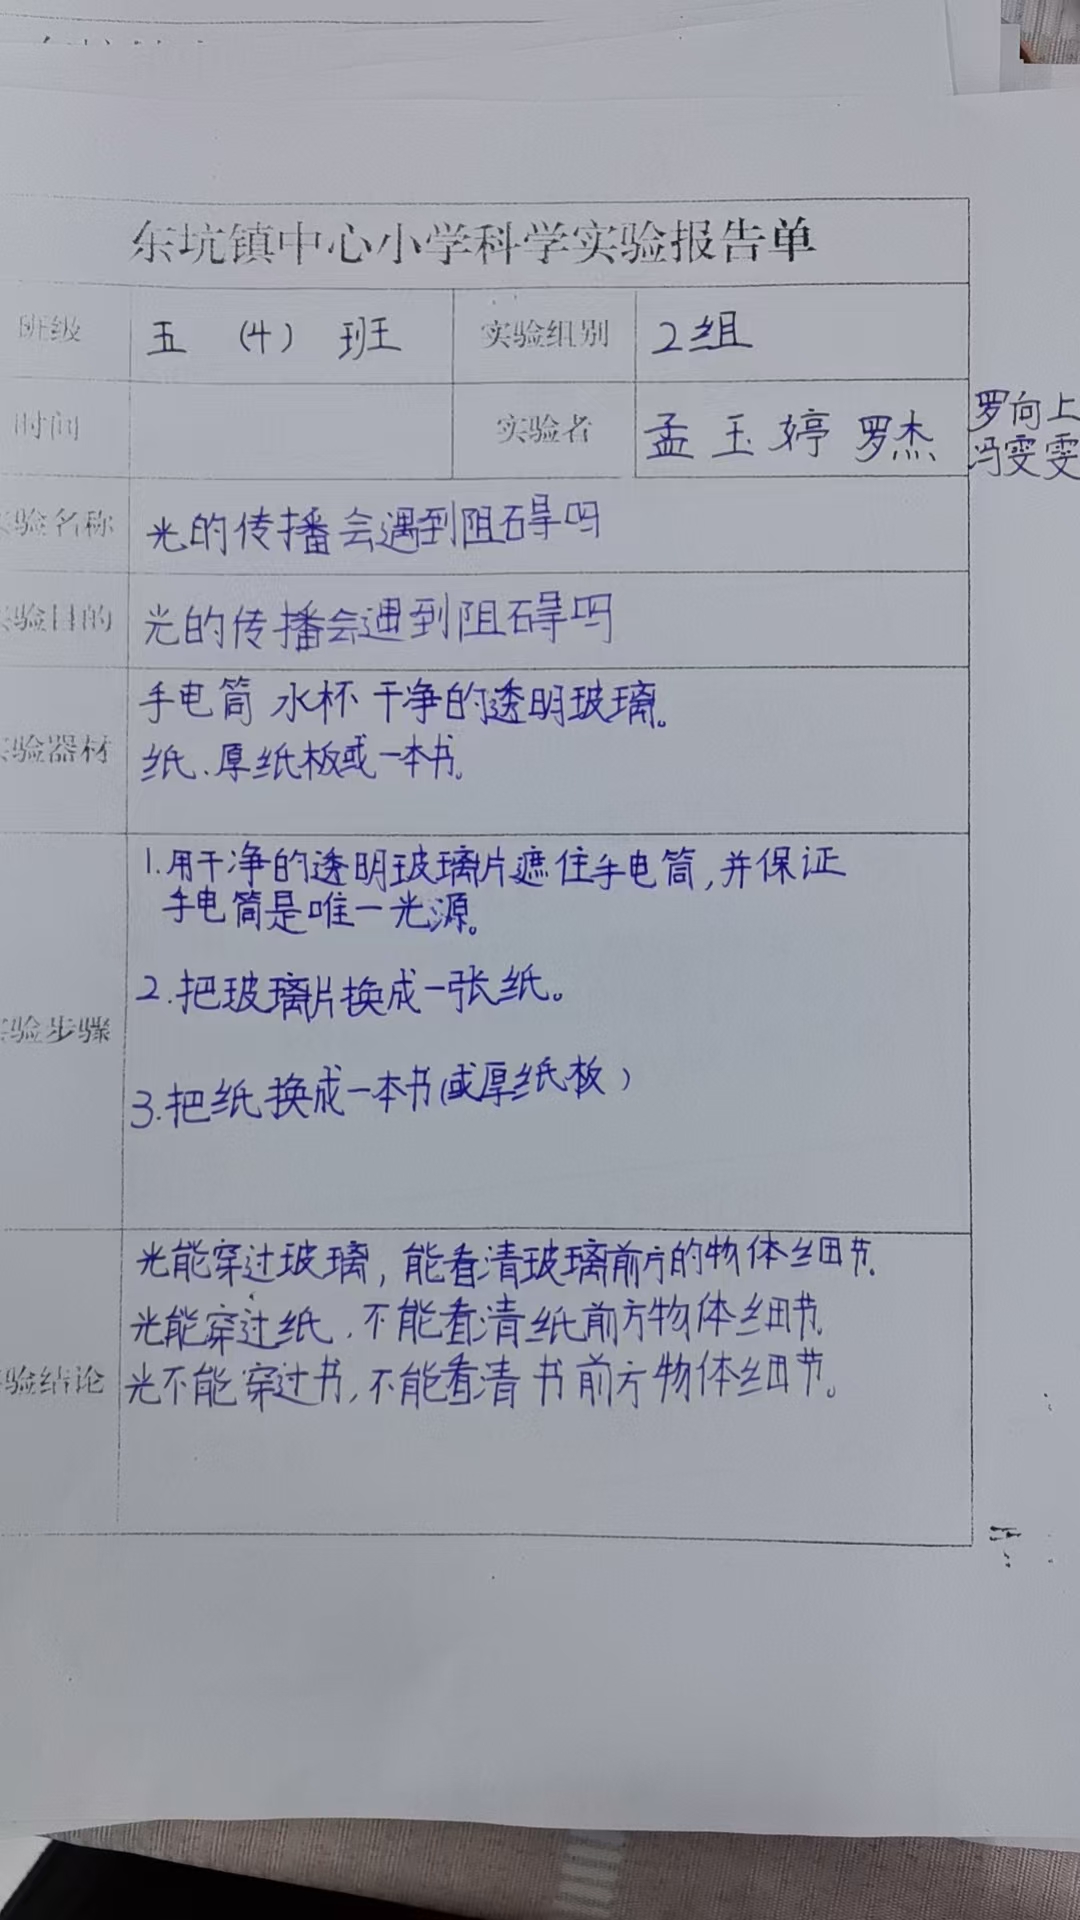 东坑镇中心小学科学实验报告单
班级 五 (4) 班 实验组别 2组
时间 实验者 孟玉婷 罗杰 罗向上
冯雯雯
实验名称 光的传播会遇到阻碍吗
实验目的 光的传播会遇到阻碍吗
手电筒 水杯 干净的透明玻璃。
实验器材 纸、厚纸板或一本书。
1.用干净的透明玻璃片遮住手电筒,并保证
手电筒是唯一光源。
2.把玻璃片换成一张纸。
实验步骤
3.把纸换成一本书(或厚纸板)
光能穿过玻璃,能看清玻璃前方的物体细节。
光能穿过纸,不能看清纸前方物体细节。
实验结论 光不能穿过书,不能看清书前方物体细节。